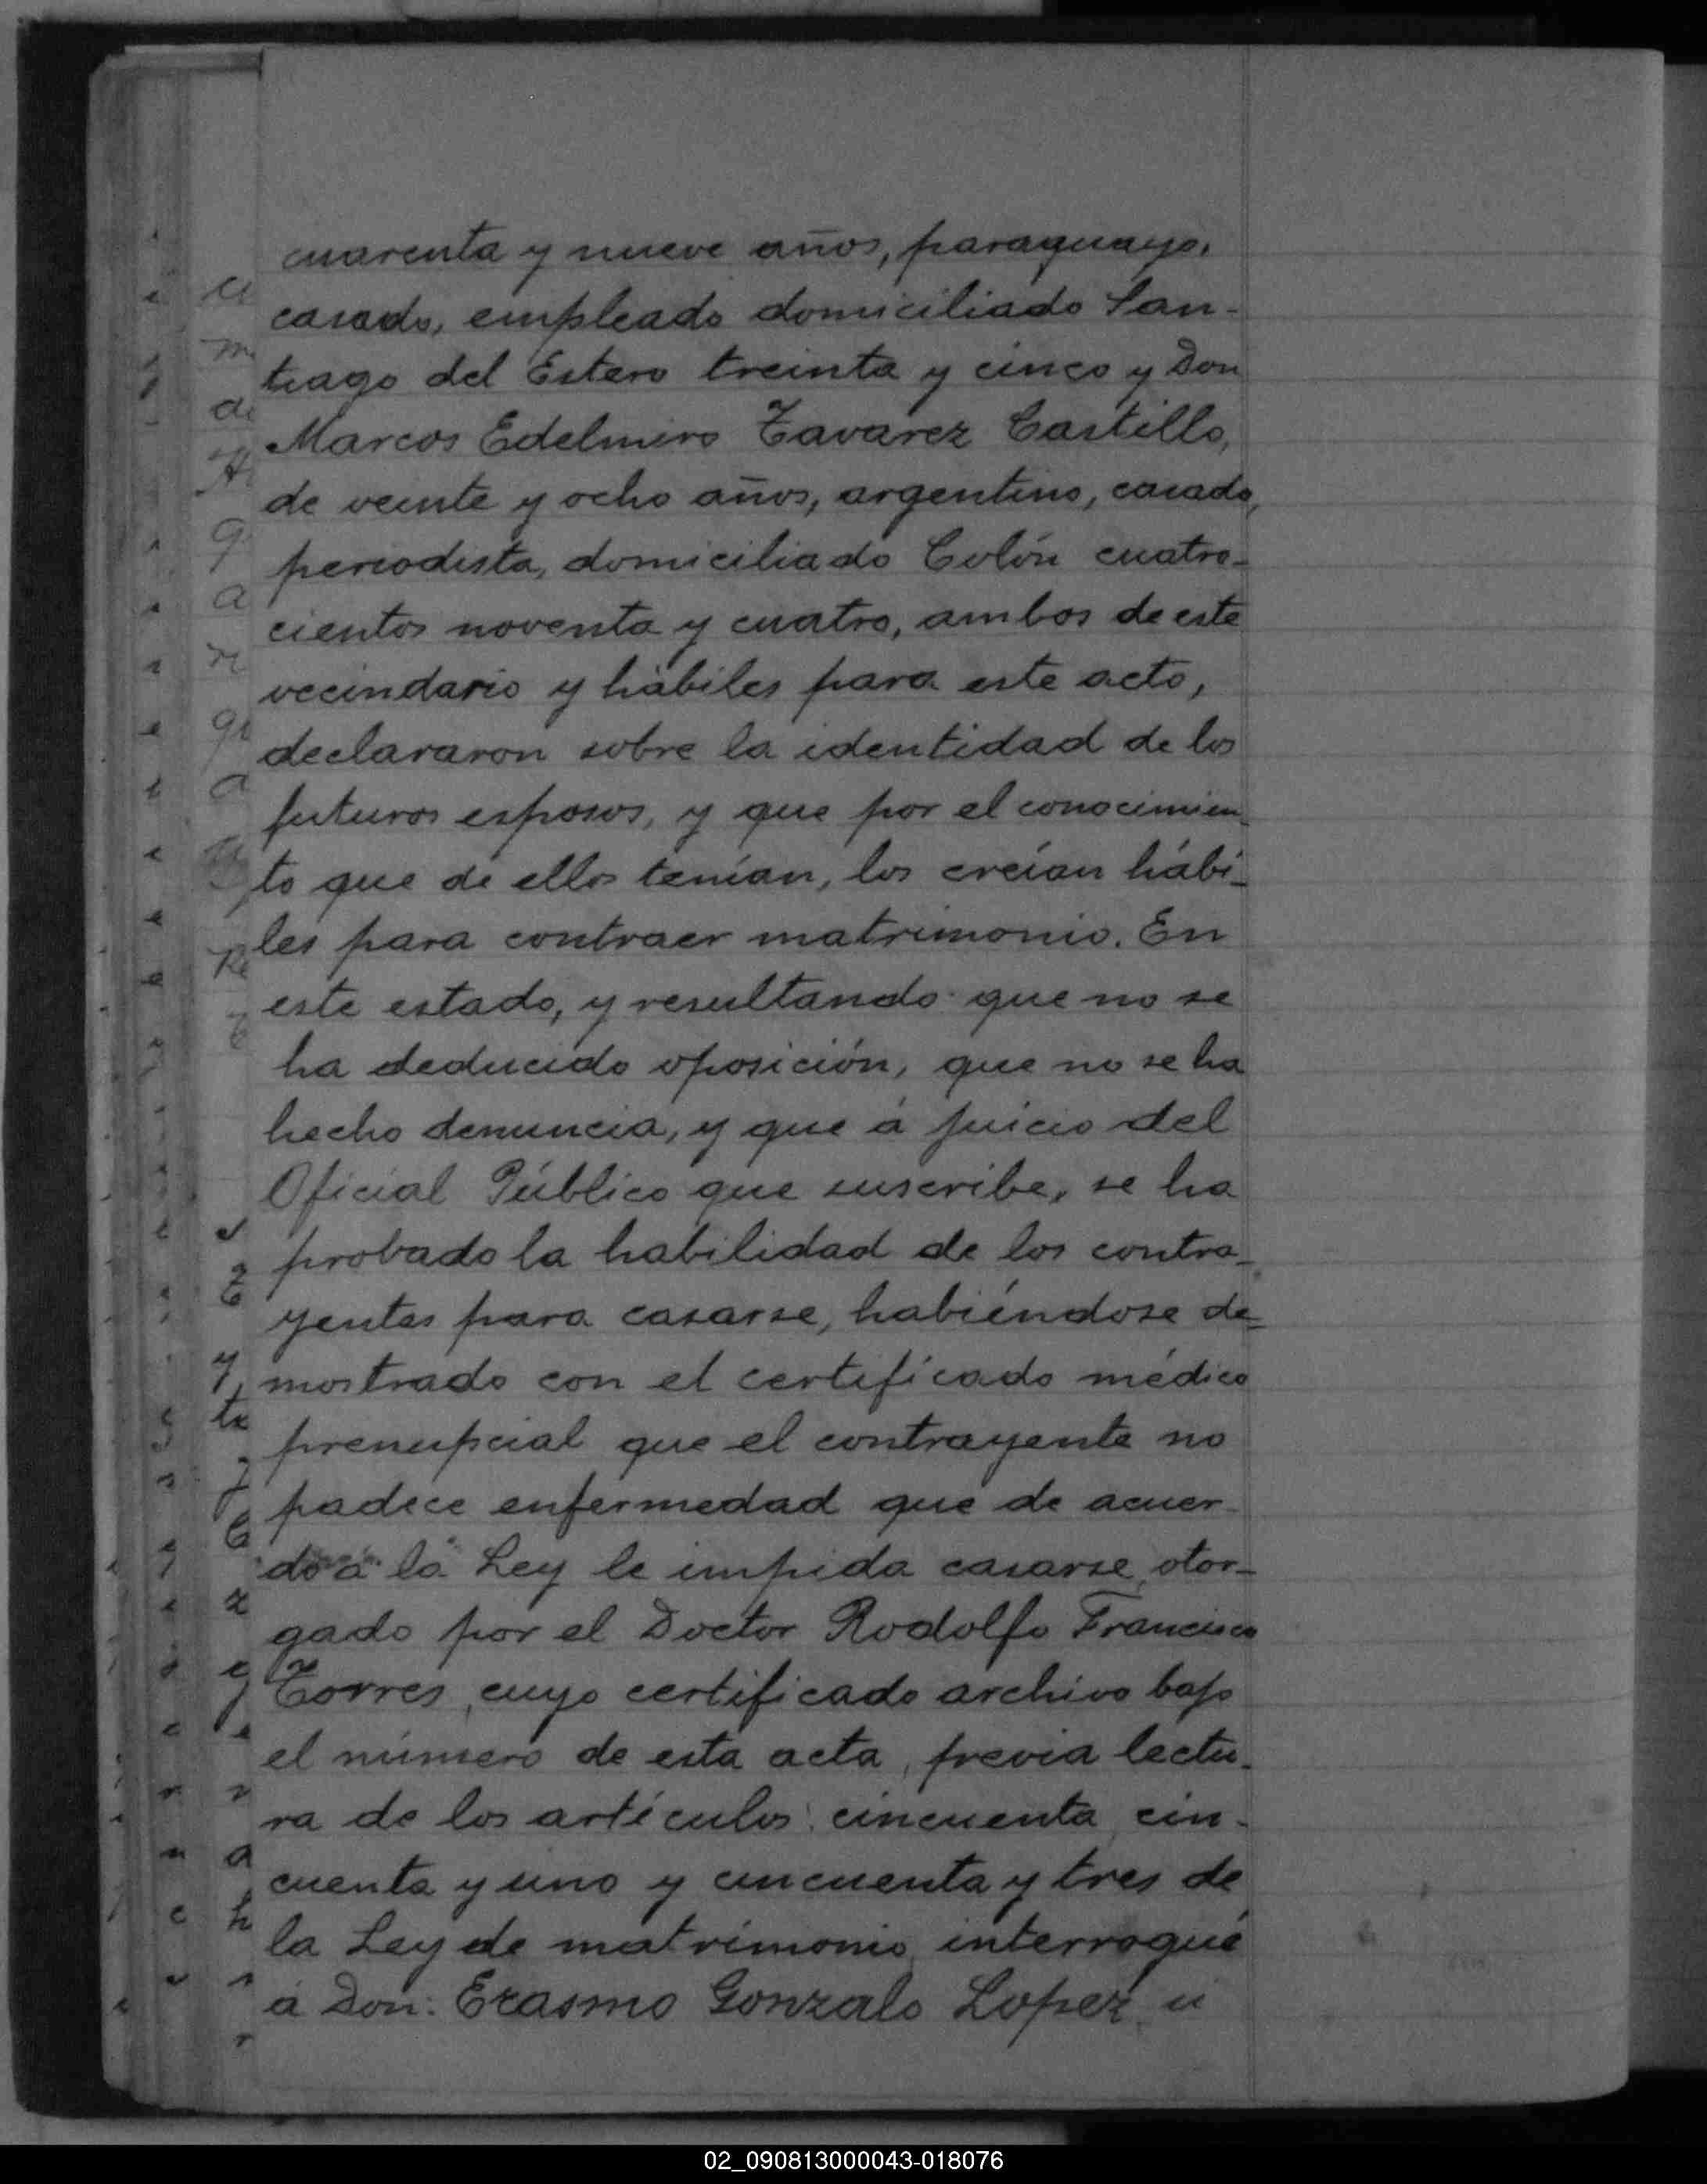 cuarenta y nueve años, paraguayo,
casado, empleado domiciliado San-
tiago del Estero treinta y cinco y Don
Marcos Edelmiro Tavarez Castillo,
de veinte y ocho años, argentino, casado,
periodista, domiciliado Colón cuatro-
cientos noventa y cuatro, ambos de este
vecindario y hábiles para este acto,
declararon sobre la identidad de los
futuros esposos, y que por el conocimien-
to que de ellos tenían, los creían hábi-
les para contraer matrimonio. En
este estado, y resultando que no se
ha deducido oposición, que no se ha
hecho denuncia, y que á juicio del
Oficial Público que suscribe, se ha
probado la habilidad de los contra-
yentes para casarse, habiéndose de-
mostrado con el certificado médico
prenupcial que el contrayente no
padece enfermedad que de acuer-
do á la Ley le impida casarse, otor-
gado por el Doctor Rodolfo Francisco
Torres, cuyo certificado archivo bajo
el número de esta acta, previa lectu-
ra de los artículos: cincuenta, cin-
cuenta y uno y cincuenta y tres de
la Ley de matrimonio, interrogué
á Don: Erasmo Gonzalo Lopez, si
02_090813000043-018076